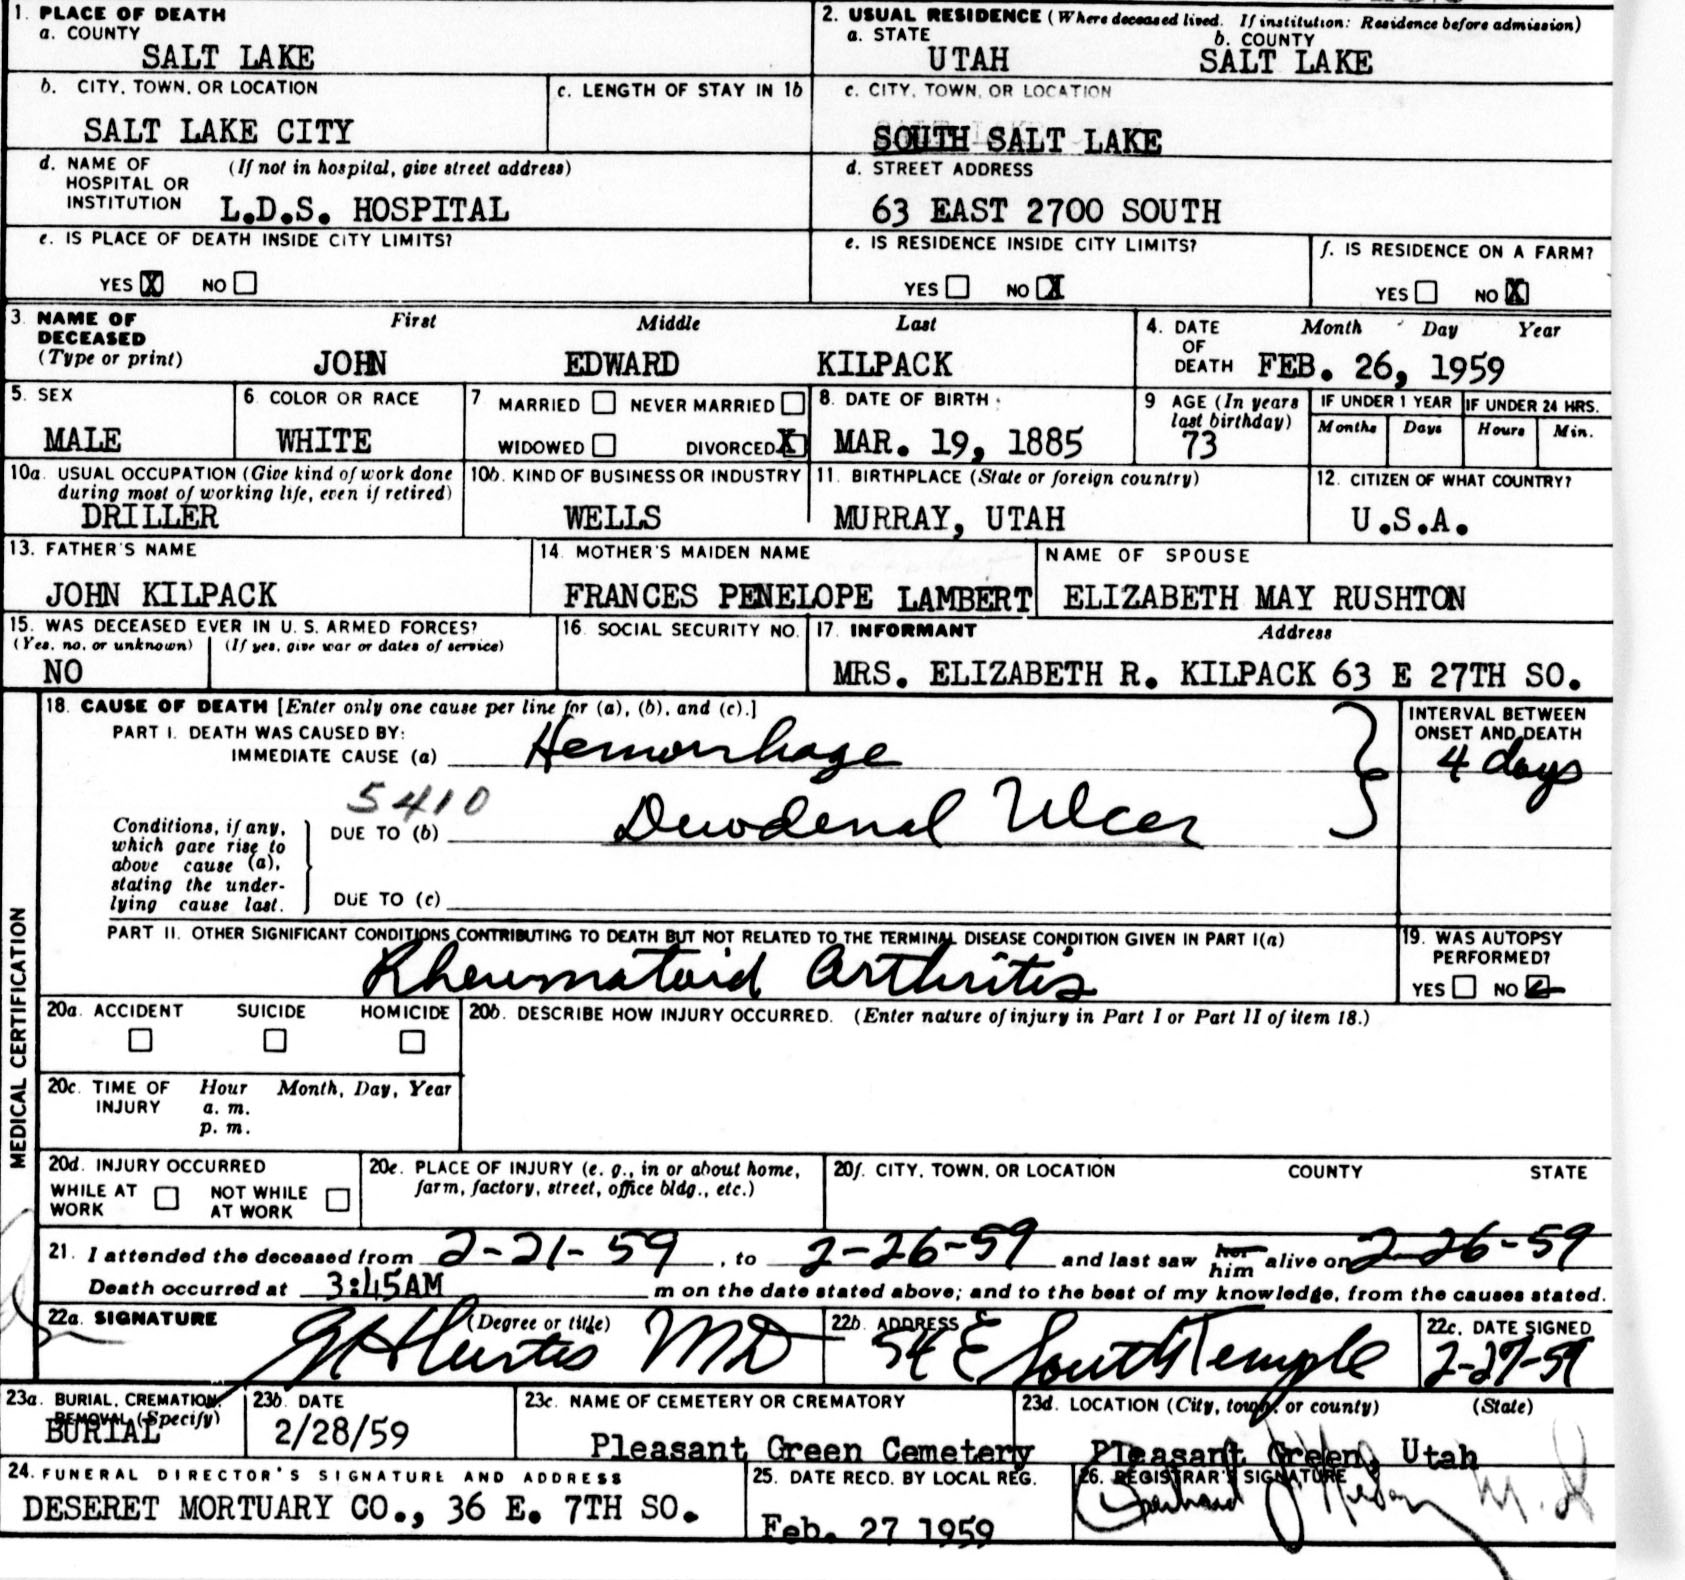 1. PLACE OF DEATH
a. COUNTY
SALT LAKE
2. USUAL RESIDENCE (Where deceased lived. If institution: Residence before admission)
a. STATE b. COUNTY
UTAH SALT LAKE
b. CITY, TOWN, OR LOCATION
SALT LAKE CITY
c. LENGTH OF STAY IN 1b
c. CITY, TOWN, OR LOCATION
SOUTH SALT LAKE
d. NAME OF (If not in hospital, give street address)
HOSPITAL OR
INSTITUTION L.D.S. HOSPITAL
d. STREET ADDRESS
63 EAST 2700 SOUTH
e. IS PLACE OF DEATH INSIDE CITY LIMITS?
YES X NO
e. IS RESIDENCE INSIDE CITY LIMITS?
YES NO X
f. IS RESIDENCE ON A FARM?
YES NO X
3. NAME OF First Middle Last
DECEASED
(Type or print) JOHN EDWARD KILPACK
4. DATE Month Day Year
OF
DEATH FEB. 26, 1959
5. SEX
MALE
6 COLOR OR RACE
WHITE
7 MARRIED NEVER MARRIED
WIDOWED DIVORCED X
8. DATE OF BIRTH
MAR. 19, 1885
9 AGE (In years
last birthday)
73
IF UNDER 1 YEAR IF UNDER 24 HRS.
Months Days Hours Min.
10a. USUAL OCCUPATION (Give kind of work done
during most of working life, even if retired)
DRILLER
10b. KIND OF BUSINESS OR INDUSTRY
WELLS
11. BIRTHPLACE (State or foreign country)
MURRAY, UTAH
12. CITIZEN OF WHAT COUNTRY?
U.S.A.
13. FATHER'S NAME
JOHN KILPACK
14. MOTHER'S MAIDEN NAME
FRANCES PENELOPE LAMBERT
NAME OF SPOUSE
ELIZABETH MAY RUSHTON
15. WAS DECEASED EVER IN U. S. ARMED FORCES?
(Yes, no, or unknown) (If yes, give war or dates of service)
NO
16. SOCIAL SECURITY NO.
17. INFORMANT Address
MRS. ELIZABETH R. KILPACK 63 E 27TH SO.
MEDICAL CERTIFICATION
18. CAUSE OF DEATH [Enter only one cause per line for (a), (b), and (c).]
PART I. DEATH WAS CAUSED BY:
IMMEDIATE CAUSE (a) Hemorrhage
INTERVAL BETWEEN
ONSET AND DEATH
4 days
5410
Conditions, if any,
which gave rise to
above cause (a),
stating the under-
lying cause last.
DUE TO (b) Duodenal Ulcer
DUE TO (c)
PART II. OTHER SIGNIFICANT CONDITIONS CONTRIBUTING TO DEATH BUT NOT RELATED TO THE TERMINAL DISEASE CONDITION GIVEN IN PART I(a)
Rheumatoid Arthritis
19. WAS AUTOPSY
PERFORMED?
YES NO
20a. ACCIDENT SUICIDE HOMICIDE
20b. DESCRIBE HOW INJURY OCCURRED. (Enter nature of injury in Part I or Part II of item 18.)
20c. TIME OF Hour Month, Day, Year
INJURY a. m.
p. m.
20d. INJURY OCCURRED
WHILE AT NOT WHILE
WORK AT WORK
20e. PLACE OF INJURY (e. g., in or about home,
farm, factory, street, office bldg., etc.)
20f. CITY, TOWN, OR LOCATION COUNTY STATE
21. I attended the deceased from 2-21-59, to 2-26-59 and last saw her him alive on 2-26-59
Death occurred at 3:45AM m on the date stated above; and to the best of my knowledge, from the causes stated.
22a. SIGNATURE (Degree or title)
MD
22b. ADDRESS
54 E South Temple
22c. DATE SIGNED
2-27-59
23a. BURIAL, CREMATION,
REMOVAL (Specify)
BURIAL
23b. DATE
2/28/59
23c. NAME OF CEMETERY OR CREMATORY
Pleasant Green Cemetery
23d. LOCATION (City, town, or county) (State)
Pleasant Green, Utah
24. FUNERAL DIRECTOR'S SIGNATURE AND ADDRESS
DESERET MORTUARY CO., 36 E. 7TH SO.
25. DATE RECD. BY LOCAL REG.
Feb. 27 1959
26. REGISTRAR'S SIGNATURE
M.D